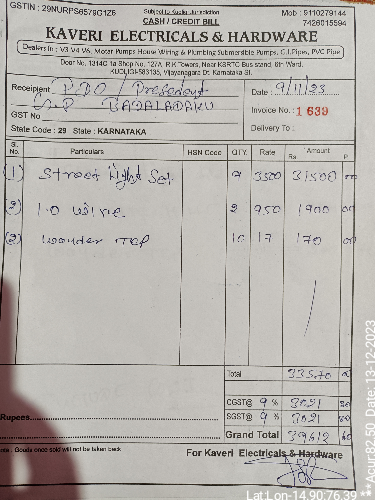 GSTIN : 29NURPS6579G1Z6
Subject to Kudligi Jurisdiction
Mob : 9110279144
CASH / CREDIT BILL
7426015594
KAVERI ELECTRICALS & HARDWARE
Dealers In : V3 V4 V6, Motar Pumps House Wiring & Plumbing Submersible Pumps, G.I.Pipes, PVC Pipe
Door No. 1314C 1a Shop No. 127A, R.K Towers, Near KSRTC Bus stand, 6th Ward.
KUDLIGI-583135, Vijayanaggara Dt. Karnataka St.
Receipient PDO / President
Date : 9/11/23
G.P BADALADAKU
Invoice No. : 1639
GST No
State Code : 29 State : KARNATAKA
Delivery To :
Sl. No. Particulars HSN Code QTY. Rate Amount Rs P
(1) Street light Set 9 3500 31500 00
(2) 1.0 wire 2 950 1900 00
(3) wonder Tap 10 17 170 00
Total 33570 00
CGST@ 9 % 3021 30
SGST@ 9 % 3021 30
Rupees
Grand Total 39612 60
Note : Goods once sold will not be taken back
For Kaveri Electricals & Hardware
Lat Lon-14.90:76.39 **Acur:82.50 Date: 13-12-2023